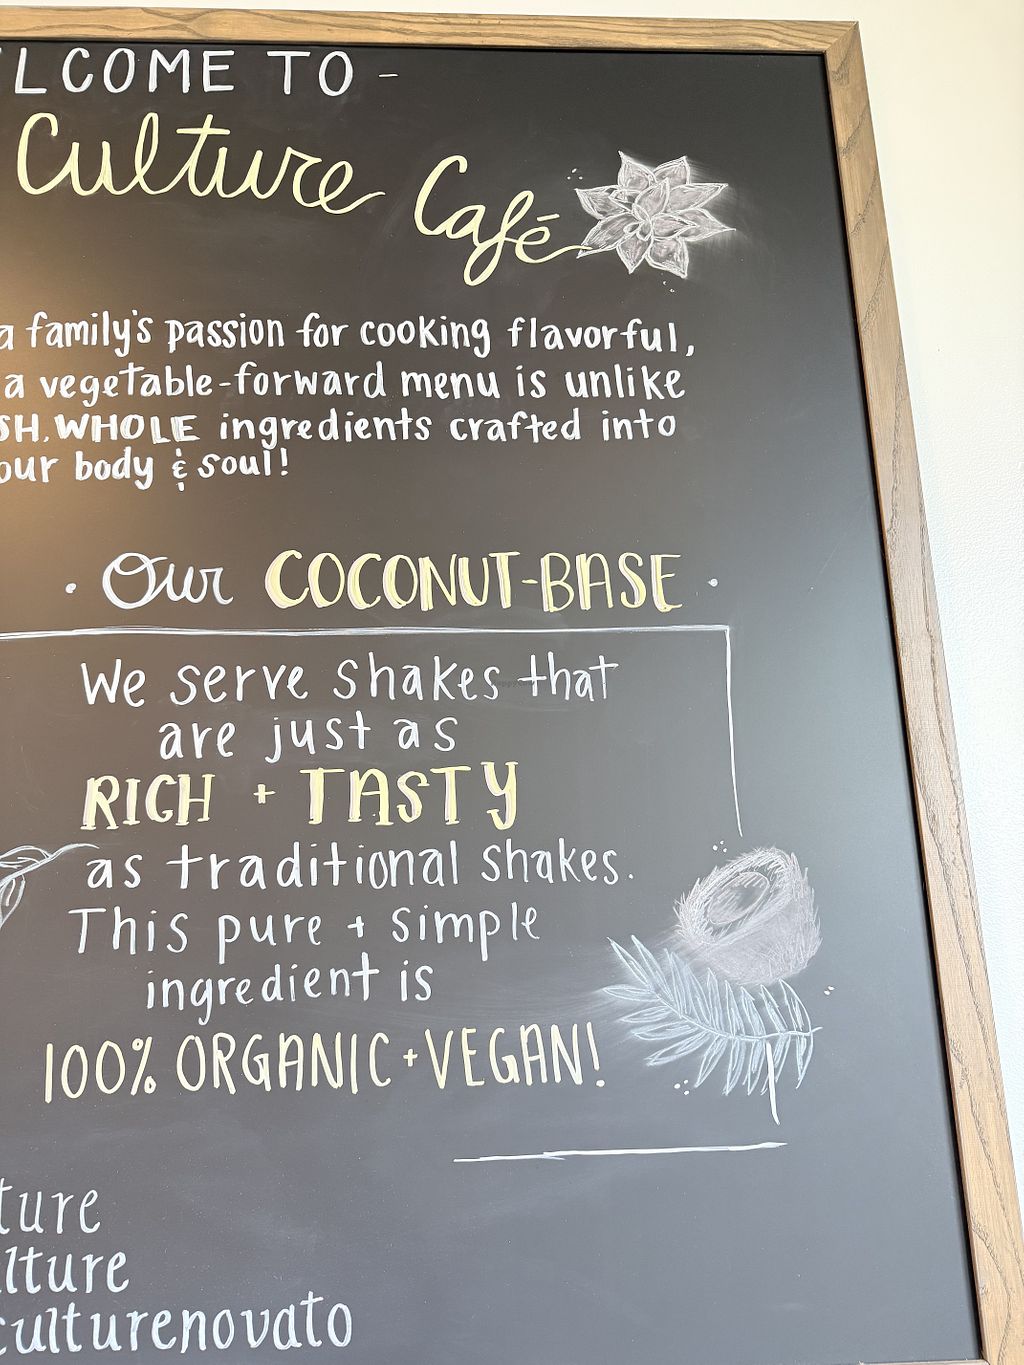 LCOME TO -
Culture Café
a family's passion for cooking flavorful,
a vegetable-forward menu is unlike
SH, WHOLE ingredients crafted into
our body & soul!
· Our COCONUT-BASE ·
We serve shakes that
are just as
RICH + TASTY
as traditional shakes.
This pure + simple
ingredient is
100% ORGANIC + VEGAN!
ture
lture
culturenovato